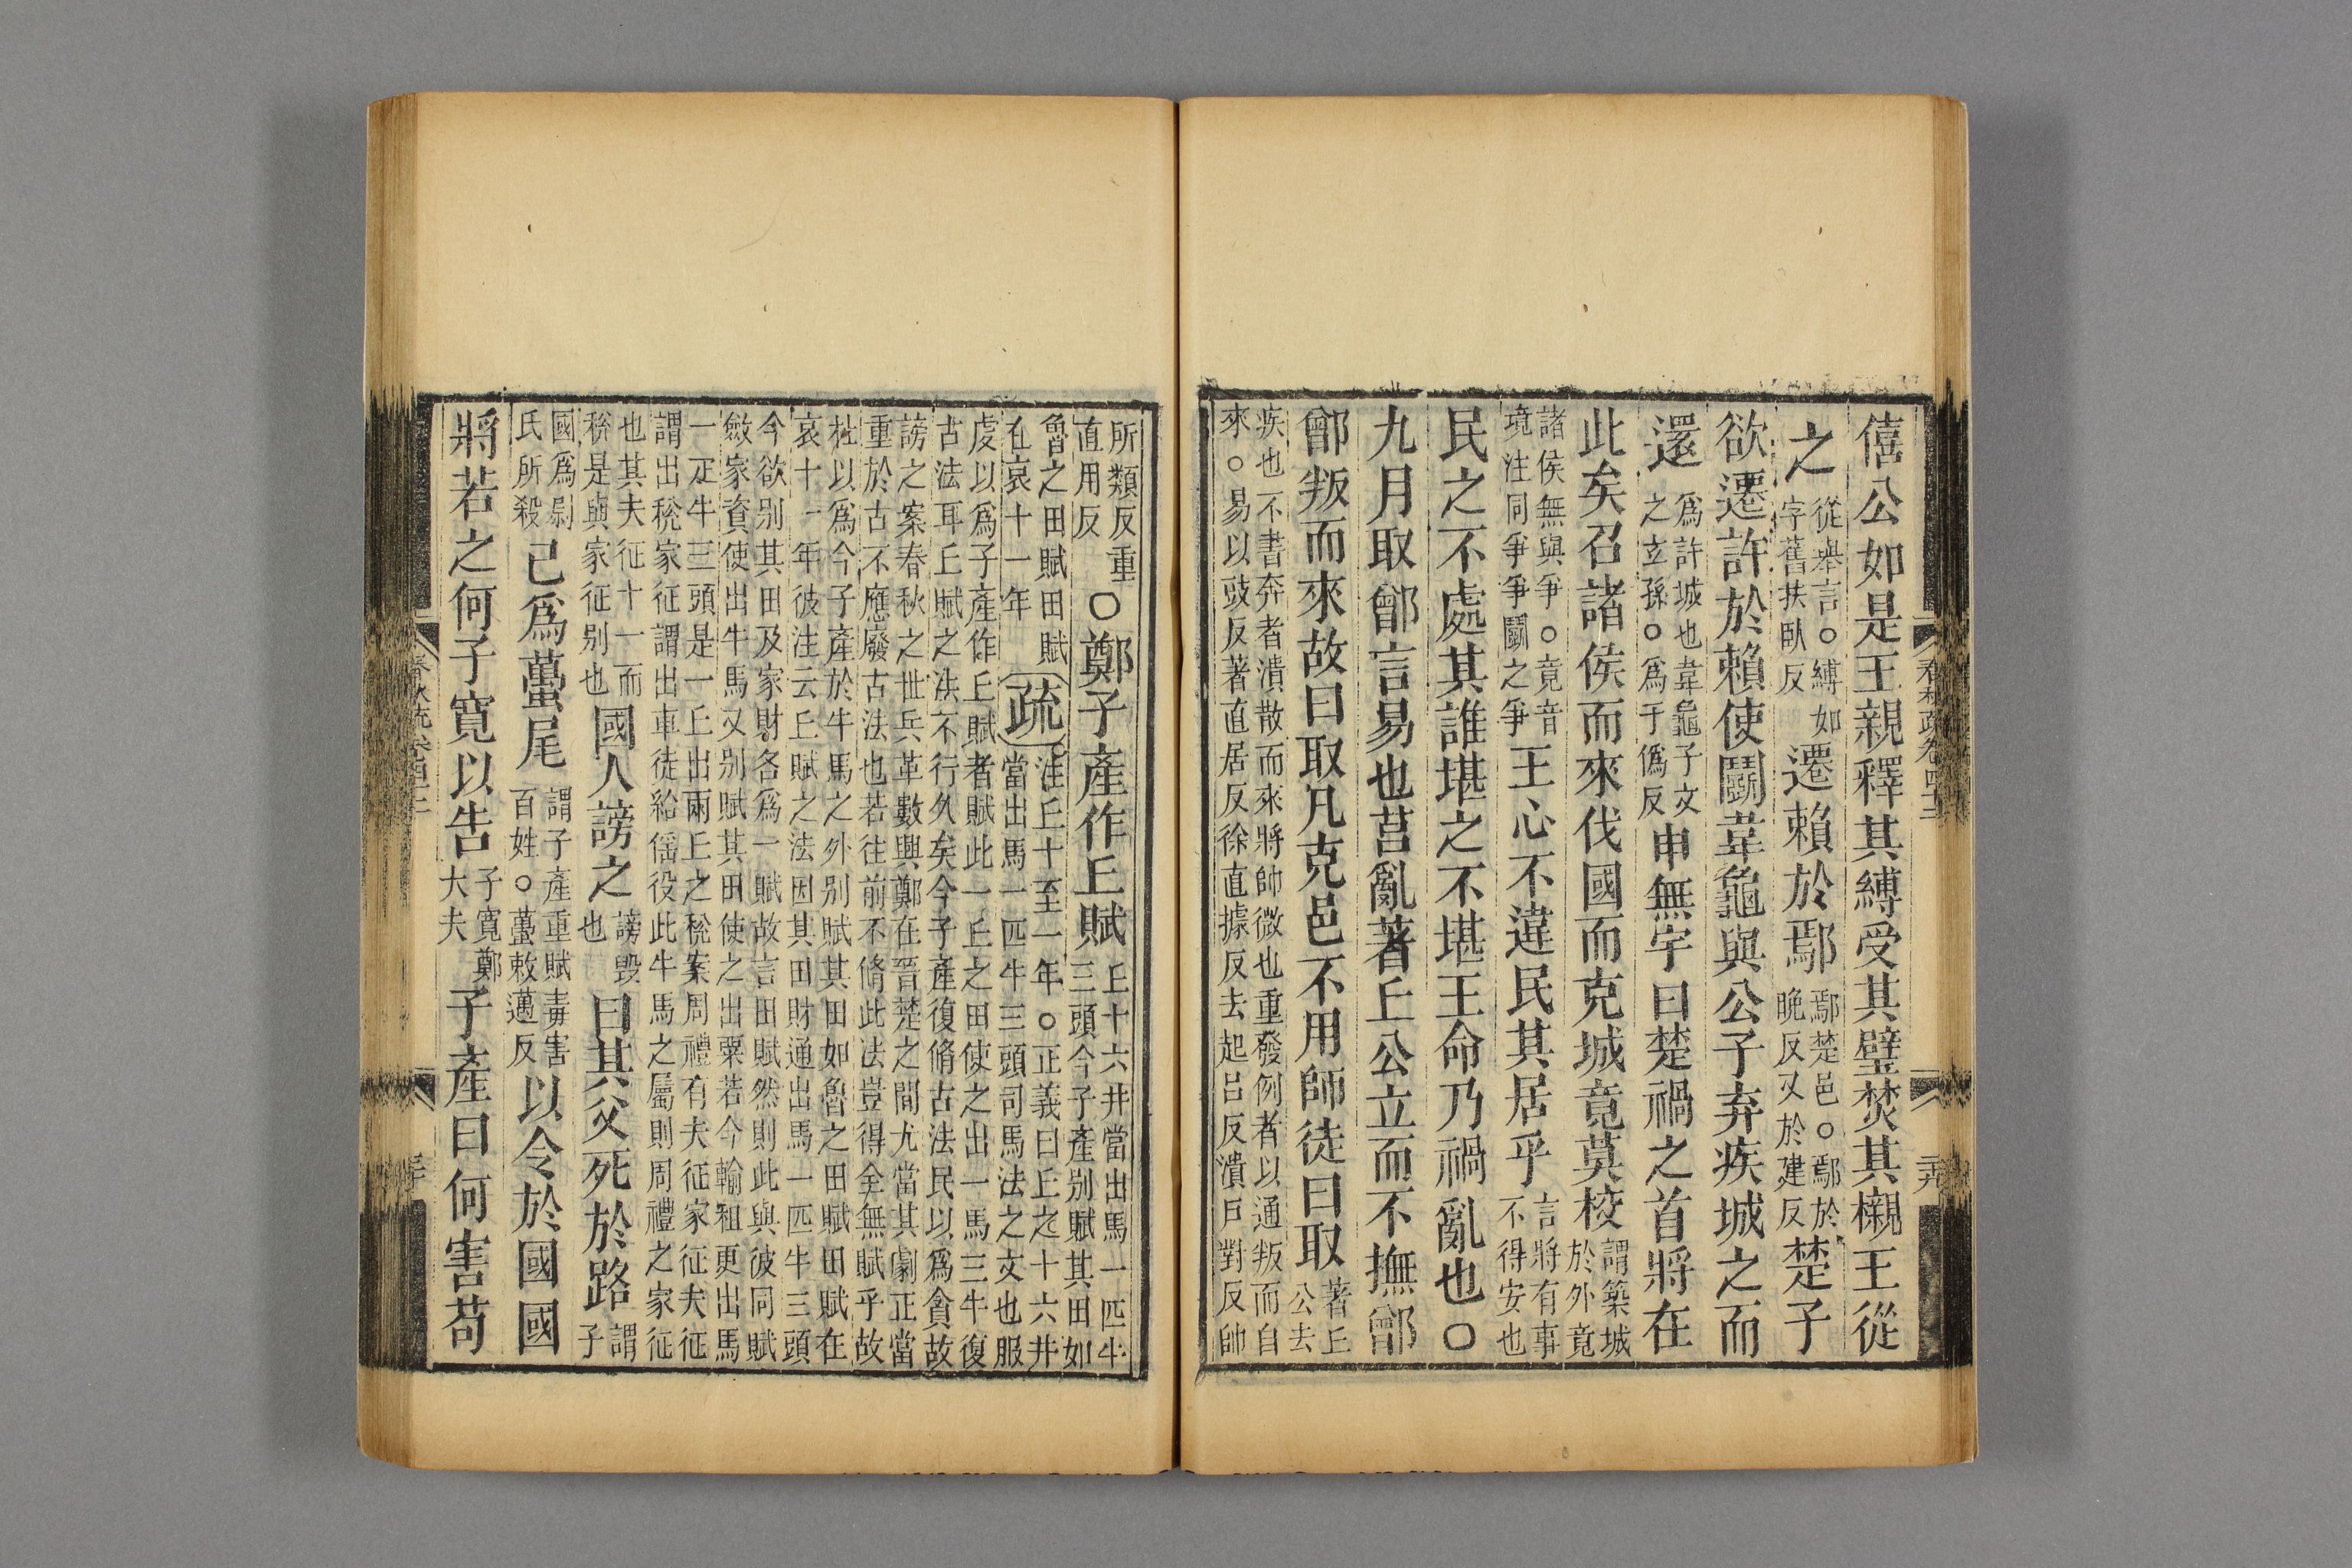 僖公如是王親釋其縛受其璧焚其櫬王從
之從舉言○縛如字舊扶臥反遷賴於鄢鄢楚邑○鄢於晚反又於建反楚子
欲遷許於賴使鬭韋龜與公子弃疾城之而
還爲許城也韋龜子文之玄孫○爲于僞反申無宇曰楚禍之首將在
此矣召諸侯而來伐國而克城竟莫校謂築城於外竟
諸侯無與爭○竟音境注同爭爭鬭之爭王心不違民其居乎言將有事不得安也
民之不處其誰堪之不堪王命乃禍亂也○
九月取鄫言易也莒亂著丘公立而不撫鄫
鄫叛而來故曰取凡克邑不用師徒曰取著丘公去
疾也不書奔者潰散而來將帥微也重發例者以通叛而自
來○易以豉反著直居反徐直據反去起呂反潰戶對反帥
所類反重直用反○鄭子產作丘賦丘十六井當出馬一匹牛三頭今子產別賦其田如
魯之田賦田賦在哀十一年疏注丘十至一年○正義曰丘之十六井當出馬一匹牛三頭司馬法之文也服
虔以爲子產作丘賦者賦此一丘之田使之出一馬三牛復
古法耳丘賦之法不行久矣今子產復脩古法民以爲貪故
謗之案春秋之世兵革數興鄭在晉楚之間尤當其劇正當
重於古不應廢古法也若往前不脩此法豈得全無賦乎故
杜以爲今子產於牛馬之外別賦其田如魯之田賦田賦在
哀十一年彼注云丘賦之法因其田財通出馬一匹牛三頭
今欲別其田及家財各爲一賦故言田賦然則此與彼同賦
斂家資使出牛馬又別賦其田使之出粟若今輸租更出馬
一疋牛三頭是一丘出兩丘之稅案周禮有夫征家征夫征
謂出稅家征謂出車徒給傜役此牛馬之屬則周禮之家征
也其夫征十一而稅是與家征別也國人謗之謗毀也曰其父死於路謂子
國爲尉氏所殺己爲蠆尾謂子產重賦毒害百姓○蠆敕邁反以令於國國
將若之何子寬以告子寬鄭大夫子產曰何害苟